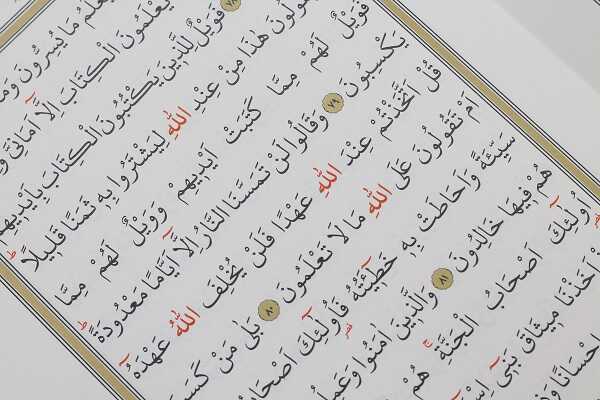 يَعْلَمُ مَا يُسِرُّونَ وَمَا
يَعْلَمُونَ الْكِتَابَ اِلَّٓا اَمَانِيَّ
٧٨ فَوَيْلٌ لِلَّذِينَ يَكْتُبُونَ الْكِتَابَ بِاَيْدِيهِمْ
يَقُولُونَ هٰذَا مِنْ عِنْدِ اللّٰهِ لِيَشْتَرُوا بِهِ ثَمَنًا قَلِيلًا
فَوَيْلٌ لَهُمْ مِمَّا كَتَبَتْ اَيْدِيهِمْ وَوَيْلٌ لَهُمْ مِمَّا
يَكْسِبُونَ ٧٩ وَقَالُوا لَنْ تَمَسَّنَا النَّارُ اِلَّٓا اَيَّامًا مَعْدُودَةً
قُلْ اَتَّخَذْتُمْ عِنْدَ اللّٰهِ عَهْدًا فَلَنْ يُخْلِفَ اللّٰهُ عَهْدَهُٓ
اَمْ تَقُولُونَ عَلَى اللّٰهِ مَا لَا تَعْلَمُونَ ٨٠ بَلٰى مَنْ كَسَبَ
سَيِّئَةً وَاَحَاطَتْ بِهِ خَطِٓيئَتُهُ فَاُولٰٓئِكَ اَصْحَابُ
هُمْ فِيهَا خَالِدُونَ ٨١ وَالَّذِينَ اٰمَنُوا وَعَمِلُوا
اُولٰٓئِكَ اَصْحَابُ الْجَنَّةِ هُمْ
اَخَذْنَا مِيثَاقَ بَنِٓي
اِحْسَانًا